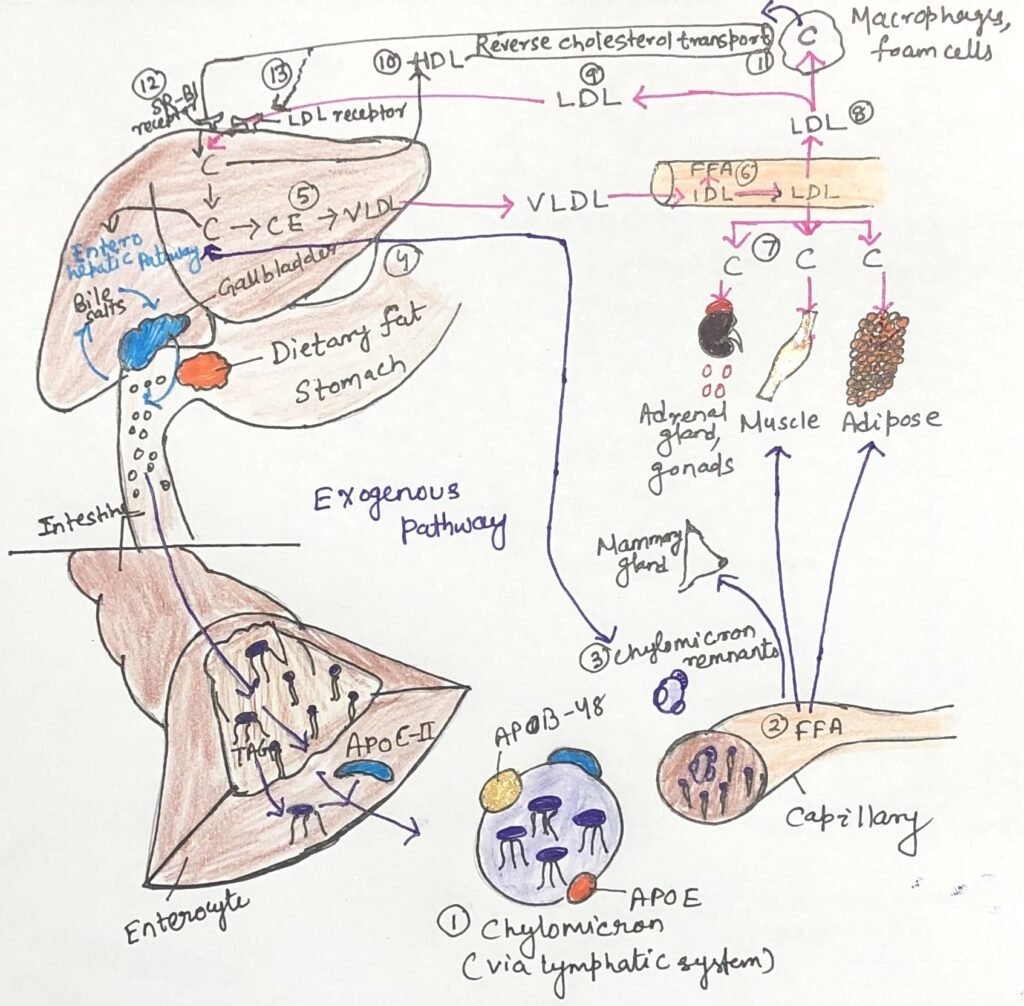 Macrophages,
foam cells
C
Reverse cholesterol transport
11
10 HDL
9
LDL
LDL 8
12
SR-B1
receptor
13
LDL receptor
C
C → CE → VLDL
5
VLDL
FFA 6
IDL → LDL
7
C C C
Entero
hepatic Pathway
Bile
salts
Gallbladder
4
Dietary fat
Stomach
Adrenal
gland,
gonads
Muscle
Adipose
Intestine
Exogenous
Pathway
Mammary
gland
3 Chylomicron
remnants
2 FFA
Capillary
TAG
APOC-II
APOB-48
APOE
Enterocyte
1 Chylomicron
(via lymphatic system)